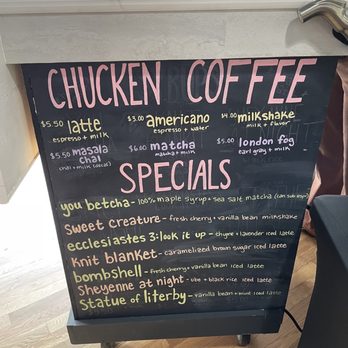 CHUCKEN COFFEE
$5.50 latte
espresso + milk
$3.00 americano
espresso + water
$4.00 milkshake
milk + flavor
$5.50 masala chai
chai + milk
$6.00 matcha
matcha + milk
$5.00 london fog
earl gray + milk
SPECIALS
you betcha - 100% maple syrup + sea salt matcha (can sub
sweet creature - fresh cherry + vanilla bean milkshake
ecclesiastes 3: look it up - thyme + lavender iced latte
knit blanket - caramelized brown sugar iced latte
bombshell - fresh cherry + vanilla bean iced latte
sheyenne at night - ube + black rice iced latte
statue of literby - vanilla bean + iced latte